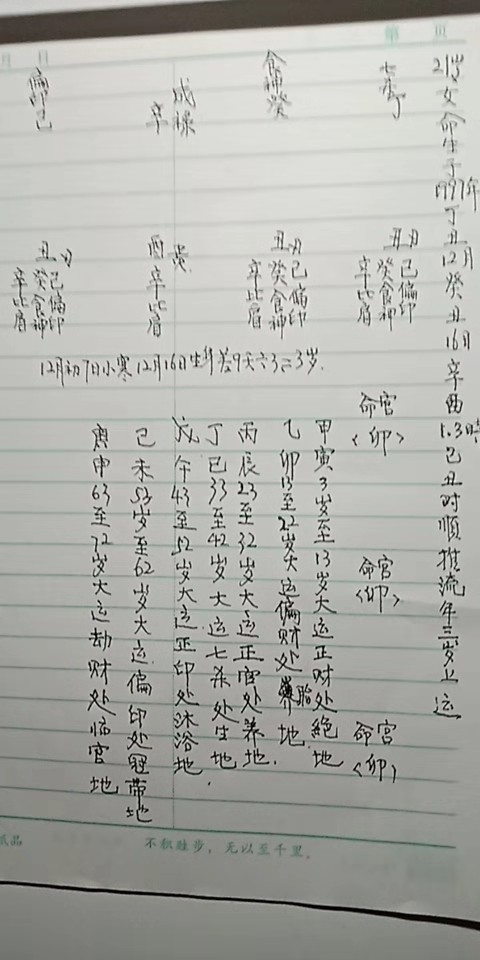 第 页
月 日
21岁女命生于1997年丁丑12月癸丑16日辛酉1.3時己丑时顺推流年三岁上运
七杀丁
食神癸
戍禄辛
偏印己
丑刃
己偏印
癸食神
辛比肩
丑刃
己偏印
癸食神
辛比肩
酉
辛比肩
丑刃
己偏印
癸食神
辛比肩
12月初7日小寒12月16日生年差9天六3=3岁.
命宫
<卯>
命宫
<卯>
命宫
<卯>
甲寅3岁至13岁大运正财处絕地
乙卯13至22岁大运偏财处胎地.
丙辰23至32岁大运正官处养地.
丁巳33至42岁大运七杀处生地.
戊午43至52岁大运正印处沐浴地
己未53岁至62岁大运偏印处冠带地
庚申63至72岁大运劫财处临官地
纸品
不积跬步，无以至千里。